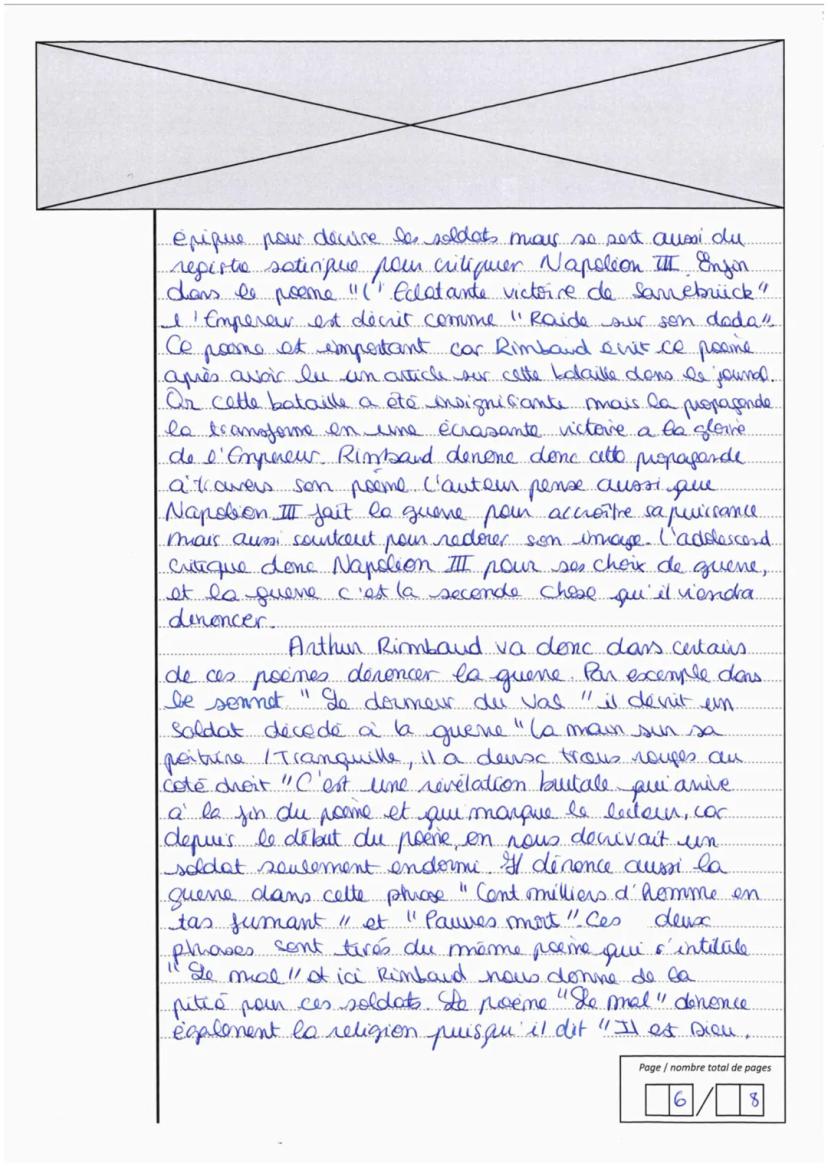 épique pour décrire les soldats mais se sert aussi du
registre satirique pour critiquer Napoléon III. Enfin
dans le poème "L'Eclatante victoire de Sarrebrück"
l'Empereur est décrit comme "Raide sur son dada".
Ce poème est important car Rimbaud écrit ce poème
après avoir lu un article sur cette bataille dans le journal.
Or cette bataille a été insignifiante mais la propagande
la transforme en une écrasante victoire a la gloire
de l'Empereur. Rimbaud denonce donc cette propagande
à travers son poème. L'auteur pense aussi que
Napoléon III fait la guerre pour accroître sa puissance
mais aussi sourtout pour redorer son image. L'adolescend
critique donc Napoléon III pour ses choix de guerre,
et la guerre c'est la seconde chose qu'il viendra
dénoncer.
Arthur Rimbaud va donc dans certains
de ces poèmes dénoncer la guerre. Par exemple dans
le sonnet "Le dormeur du Val" il décrit un
soldat décédé à la guerre "La main sur sa
poitrine / Tranquille, il a deux trous rouges au
coté droit" C'est une révélation brutale qui arrive
à la fin du poème et qui marque le lecteur, car
depuis le début du poème, on nous decrivait un
soldat seulement endormi. Il dénonce aussi la
guerre dans cette phrase "Cent milliers d'homme en
tas fumant" et "Pauvres mort". Ces deux
phrases sont tirés du même poème qui s'intitule
"Le mal" et ici Rimbaud nous donne de la
pitié pour ces soldats. Le poème "Le mal" dénonce
également la religion puisqu'il dit "Il est Dieu,
Page / nombre total de pages
6 / 8